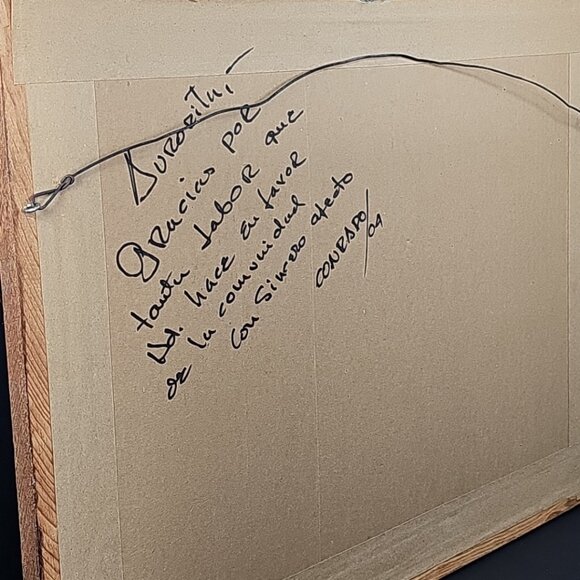 Aurorita,-
Gracias por
tanta labor que
Ud. hace en favor
de la comunidad
con sincero afecto
CONRADO/04